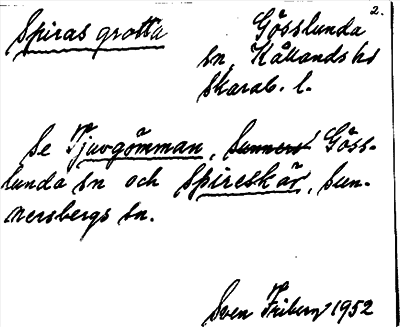 2.
Spiras grotta Gösslunda
sn, Kållands hd
Skarab. l.
Se Tjuvgömman, Sunners Göss-
lunda sn och Spireskär, Sun-
nersbergs sn.
Sven Friberg 1952